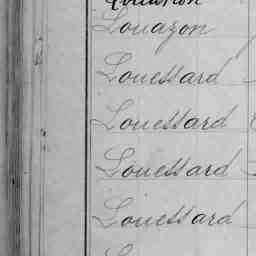 Louazon
Louessard
Louessard
Louessard
Louessard